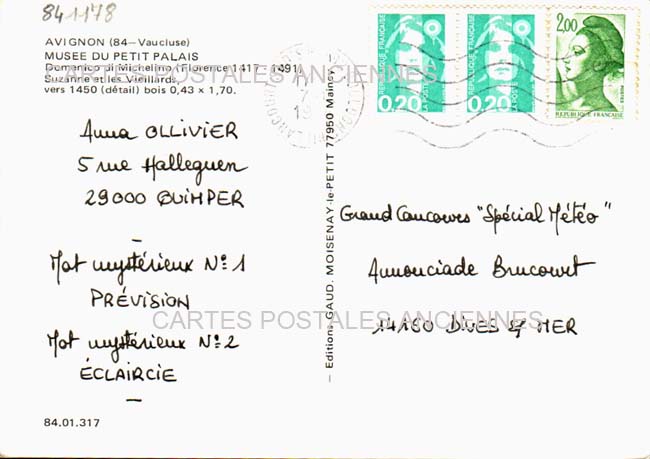 841178
AVIGNON (84—Vaucluse)
MUSEE DU PETIT PALAIS
Domenico di Michelino (Florence 1417 - 1491)
Suzanne et les Vieillards,
vers 1450 (détail) bois 0,43 x 1,70.
CARTES POSTALES ANCIENNES
Anna OLLIVIER
5 rue Halleguen
29000 QUIMPER
Mot mystérieux N°1
PRÉVISION
Mot mystérieux N°2
ÉCLAIRCIE
84.01.317
— Editions, GAUD. MOISENAY-le-PETIT 77950 Maincy —
RÉPUBLIQUE FRANÇAISE
0,20
LA POSTE
RÉPUBLIQUE FRANÇAISE
0,20
LA POSTE
2,00
POSTES
REPUBLIQUE FRANCAISE
Grand Concours "Spécial Météo"
Annonciade Brucowet
14160 DIVES S/ MER
CARTES POSTALES ANCIENNES
CARTES POSTALES ANCIENNES